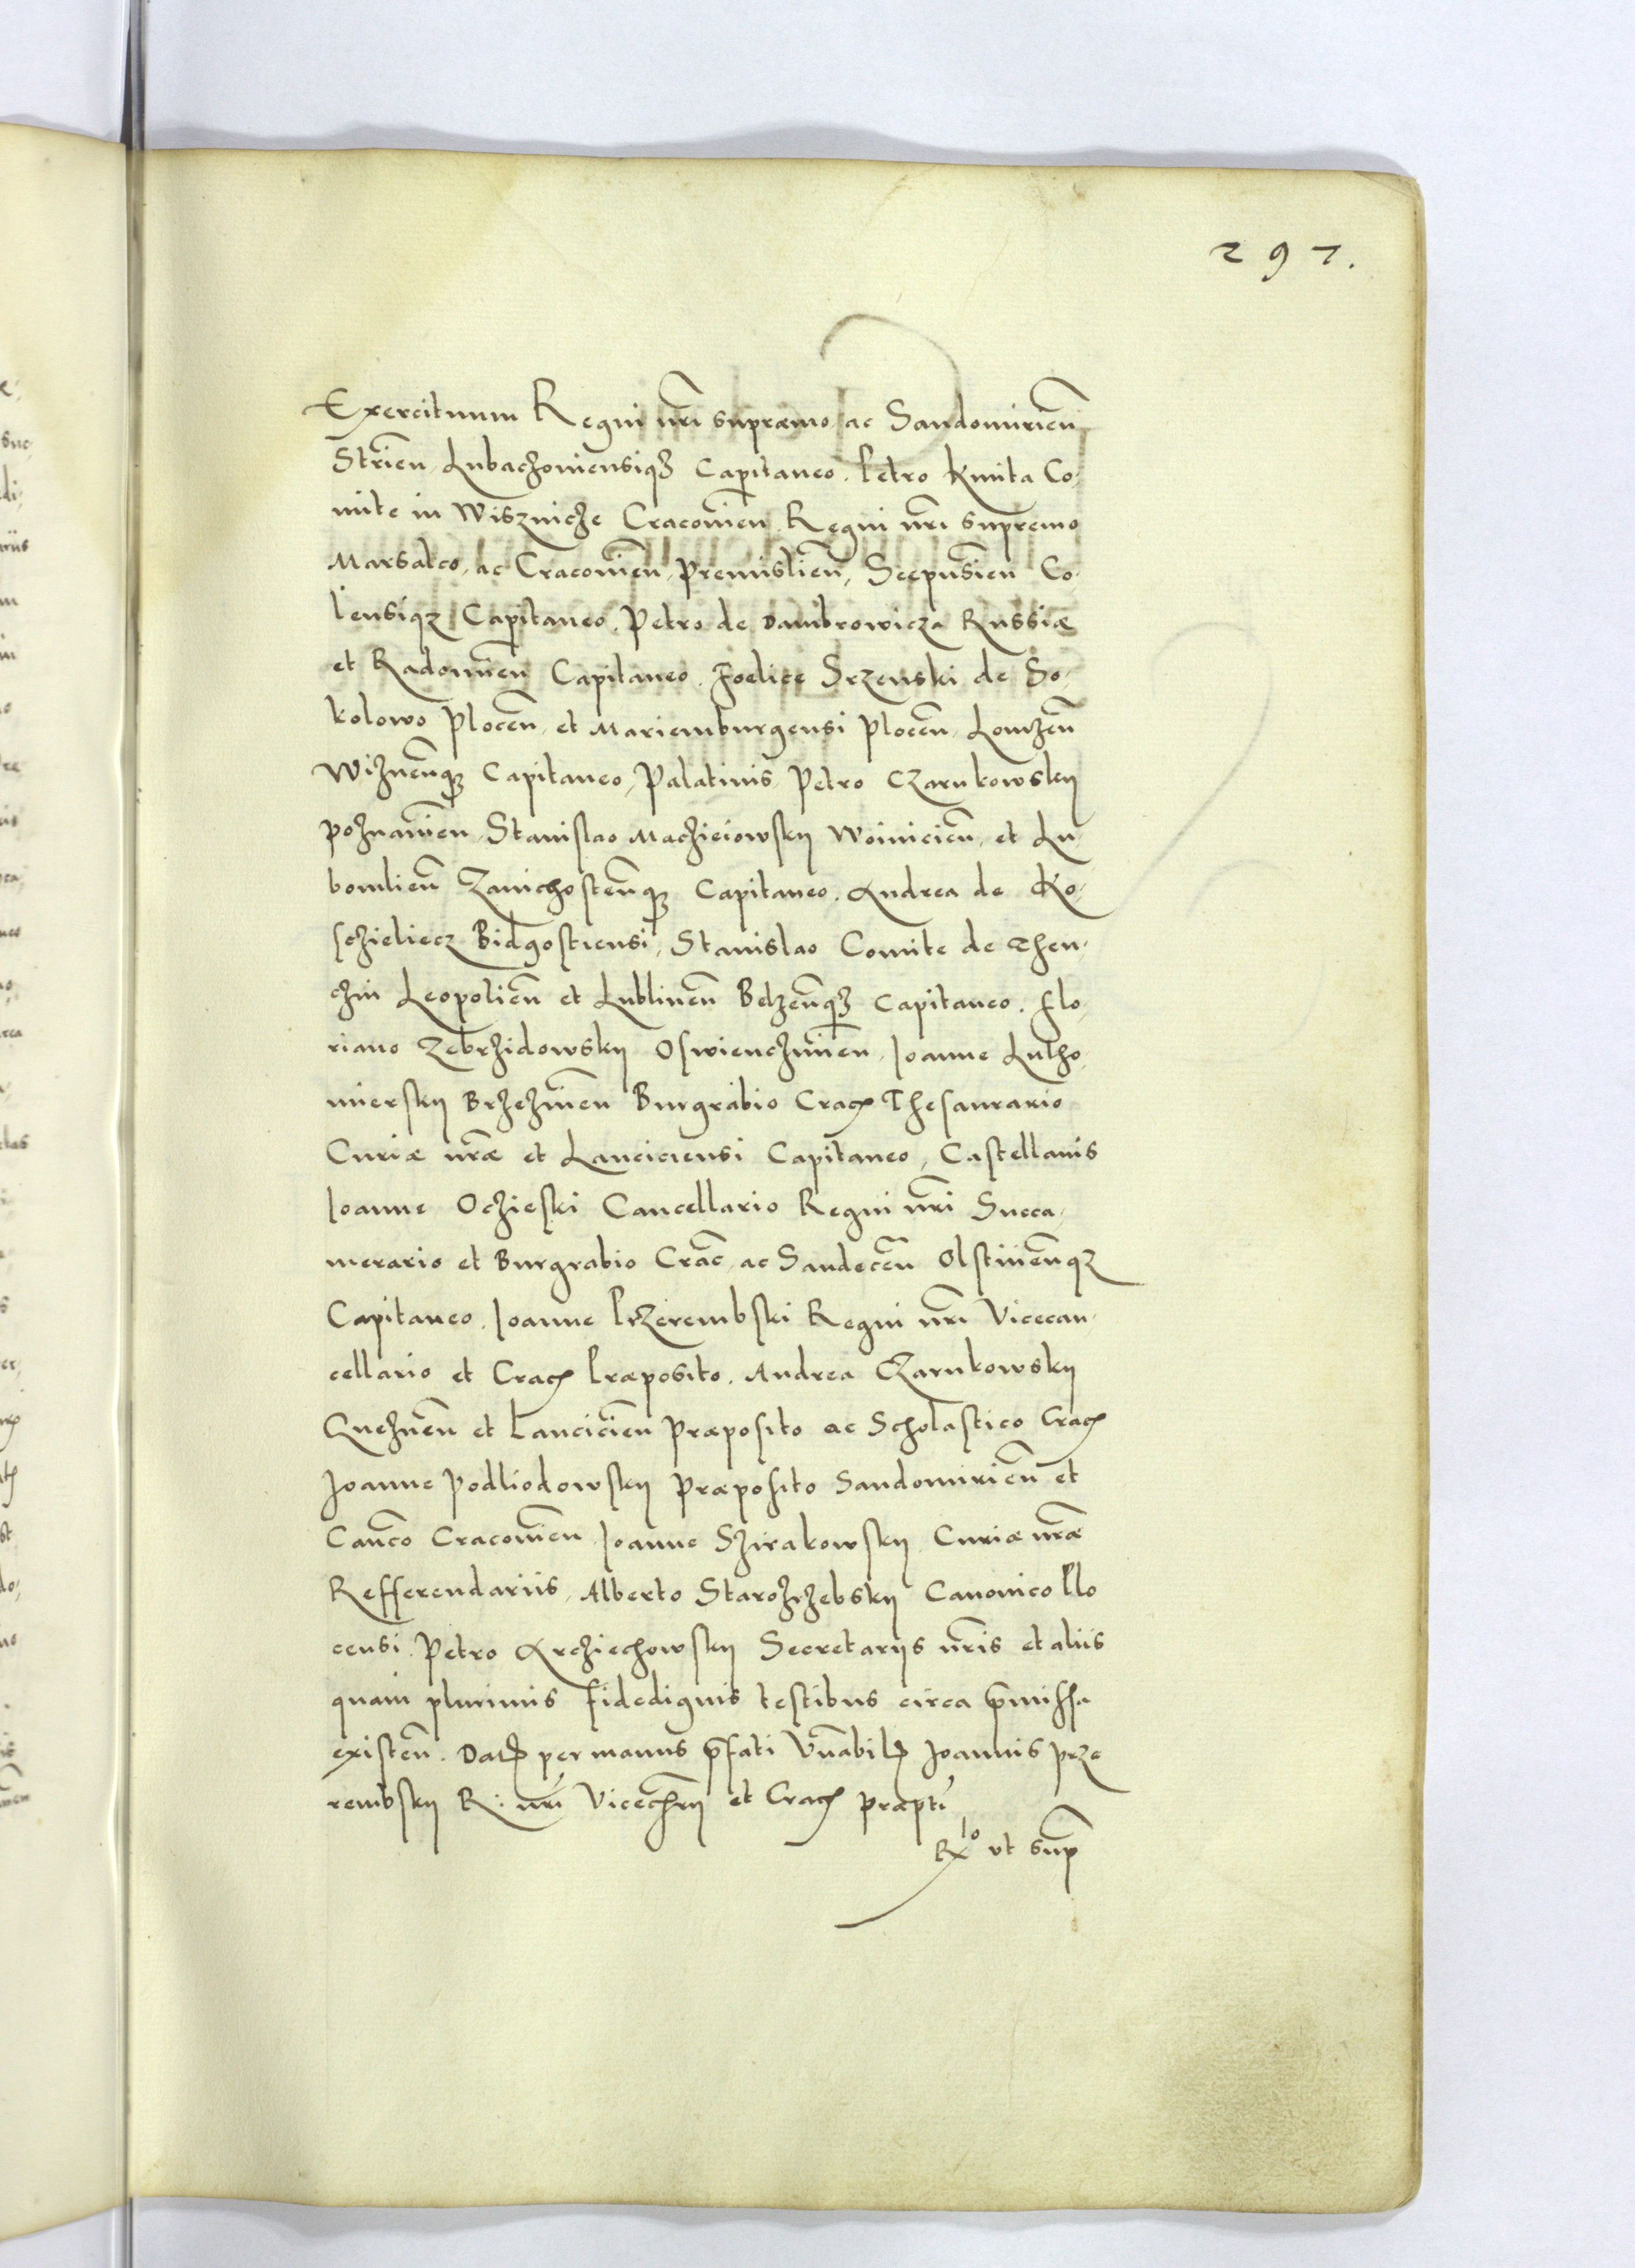 297.
Exercituum Regni nrī supræmo ac Sandomirień
Strień Lubachoviensiqȝ Capitaneo. Petro Kmita Co-
mite in Wisznicze Cracovień Regni nrī supremo
Marsalco, ac Cracovień, Premislień, Scepusień Co-
lensiqȝ Capitaneo. Petro de Dambrowicza Russiæ
et Radomień Capitaneo. Foelice Srzenski de So-
kolowo Ploceń, et Mariemburgensi Ploceń, Lomzeń
Wizneńqȝ Capitaneo, Palatinis, Petro Czarnkowskij
poznanień, Stanislao Macziciowskij Woinicień, et Lu-
bomlień Zavichosteńqȝ Capitaneo. Andrea de Ko-
sczieliecz Bidgostiensi, Stanislao Comite de Then-
czin Leopolień et Lublineń Belzeńqȝ Capitaneo. Flo-
riano Zebrzidowskij Oswienczimień, Ioanne Lutho-
mierskij Brzezinień Burgrabio Crac Thesaurario
Curiæ nrǣ et Lanciciensi Capitaneo, Castellanis
Ioanne Oczieski Cancellario Regni nrī Succa-
merario et Burgrabio Crac, ac Sandeceń Olstineńqȝ
Capitaneo. Ioanne Przerembski Regni nrī Vicecan-
cellario et Crac Præposito. Andrea Czarnkowskij
Gnezneń et Lancicień Præposito ac Scholastico Crac
Joanne Podliodowskij Præposito Sandomirień et
Canco Cracovień Ioanne Szirakowskij Curiæ nrǣ
Refferendariis, Alberto Starozrzebskij Canonico Plo
censi. Petro Arcziechowskij Secretarijs nrīs et aliis
quam plurimis fidedignis testibus circa pmissa
existeń. Dat per manus pfati Vnabil Joannis Prze
rembskij R: nrī Vicecnrij et Crac præpti
Rlo vt sup